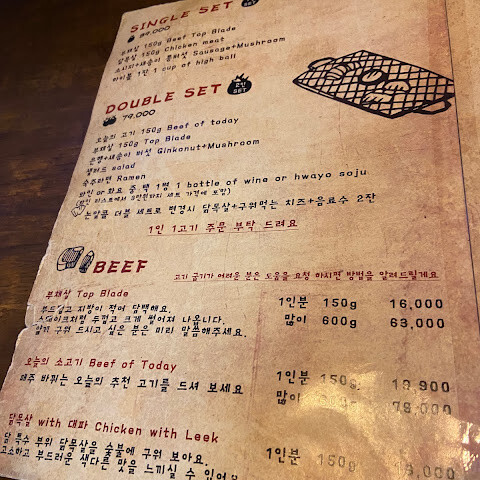 SINGLE SET
SET
39,000
부채살 150g Beef Top Blade
닭목살 150g Chicken meat
소시지+새송이 버섯 Sausage+Mushroom
하이볼 1잔 1 cup of high ball
DOUBLE SET
2인 SET
79,000
오늘의 고기 150g Beef of today
부채살 150g Top Blade
은행+새송이 버섯 Ginkonut+Mushroom
샐러드 salad
숙주라면 Ramen
와인 or 화요 중 택 1병 1 bottle of wine or hwayo soju
(와인 리스트에서 3만원까지 세트 가격에 포함)
논알콜 더블 세트로 변경시 닭목살+구워먹는 치즈+음료수 2잔
1인 1고기 주문 부탁 드려요
BEEF
고기 굽기가 어려운 분은 도움을 요청 하시면 방법을 알려드릴게요
부채살 Top Blade
1인분 150g 16,000
부드럽고 지방이 적어 담백해요.
많이 600g 63,000
스테이크처럼 두껍고 크게 썰어져 나옵니다.
얇게 구워 드시고 싶은 분은 미리 말씀해주세요.
오늘의 소고기 Beef of Today
1인분 150g 19,900
매주 바뀌는 오늘의 추천 고기를 드셔 보세요
많이 600g 78,000
닭목살 with 대파 Chicken with Leek
1인분 150g
닭 특수 부위 닭목살을 숯불에 구워 보아요.
고소하고 부드러운 색다른 맛을 느끼실 수 있어요